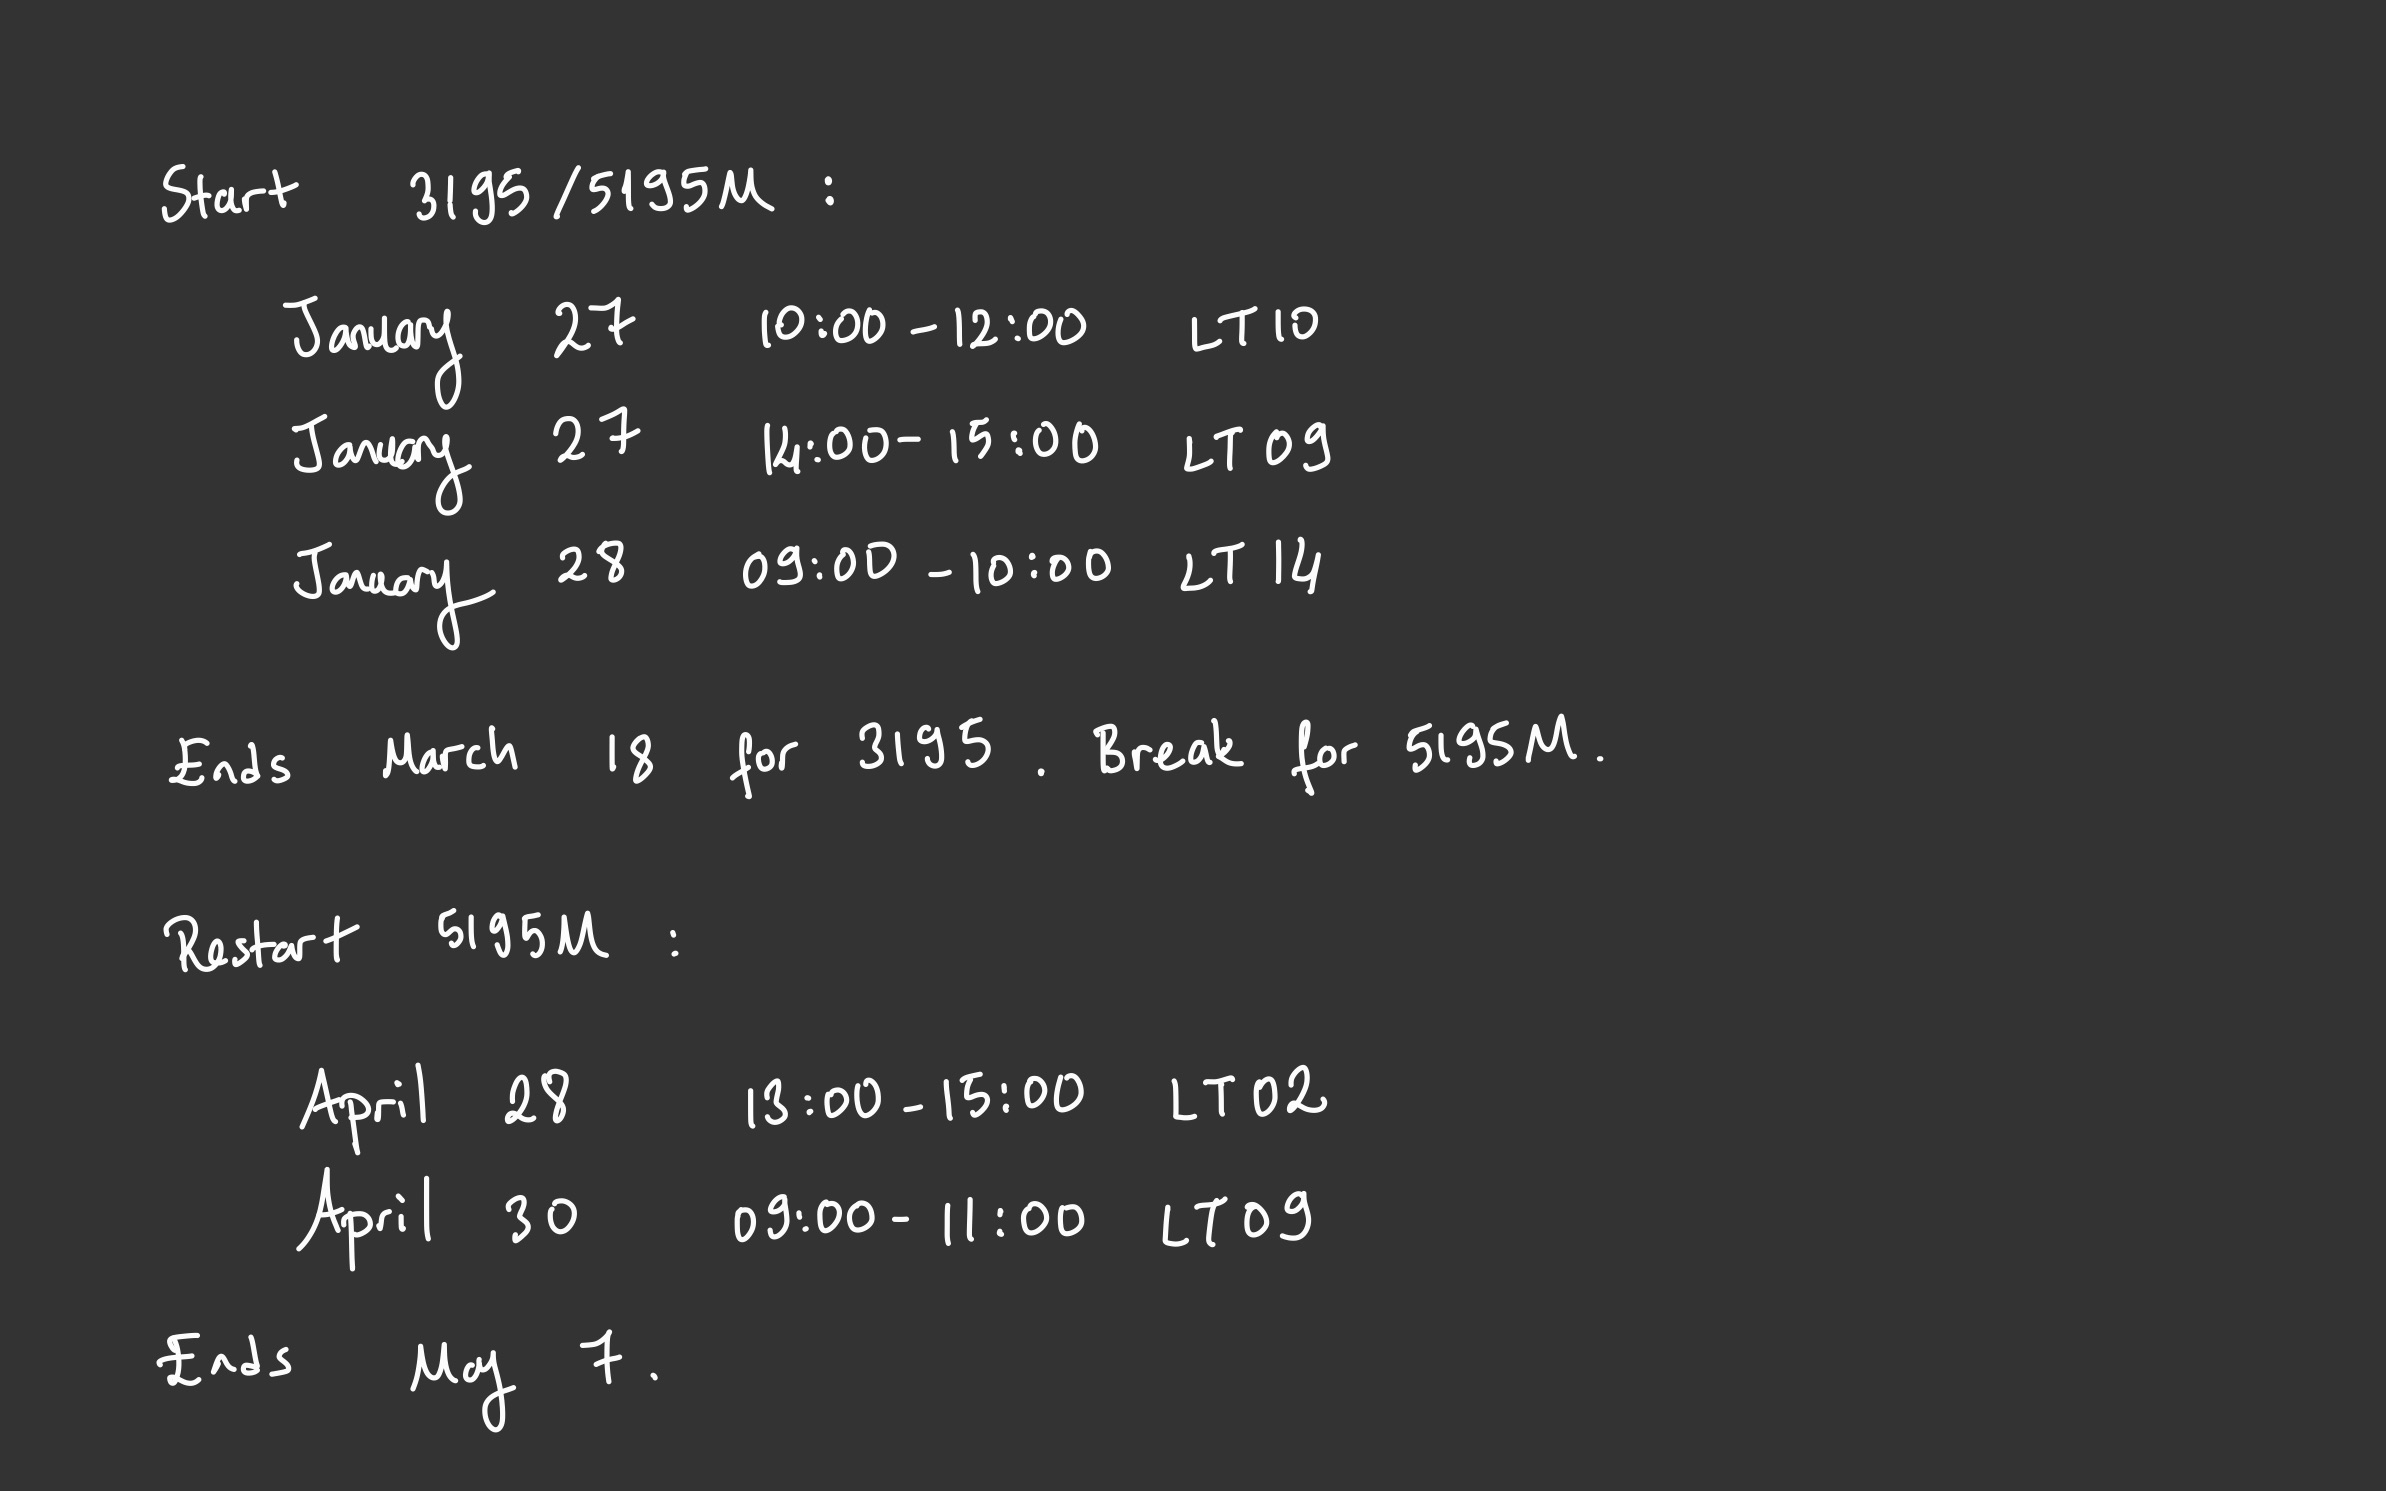 Start 3195/5195M :
January 27 10:00-12:00 LT10
January 27 14:00-15:00 LT09
January 28 09:00-10:00 LT14
Ends March 18 for 3195. Break for 5195M.
Restart 5195M :
April 28 13:00-15:00 LT02
April 30 09:00-11:00 LT09
Ends May 7.